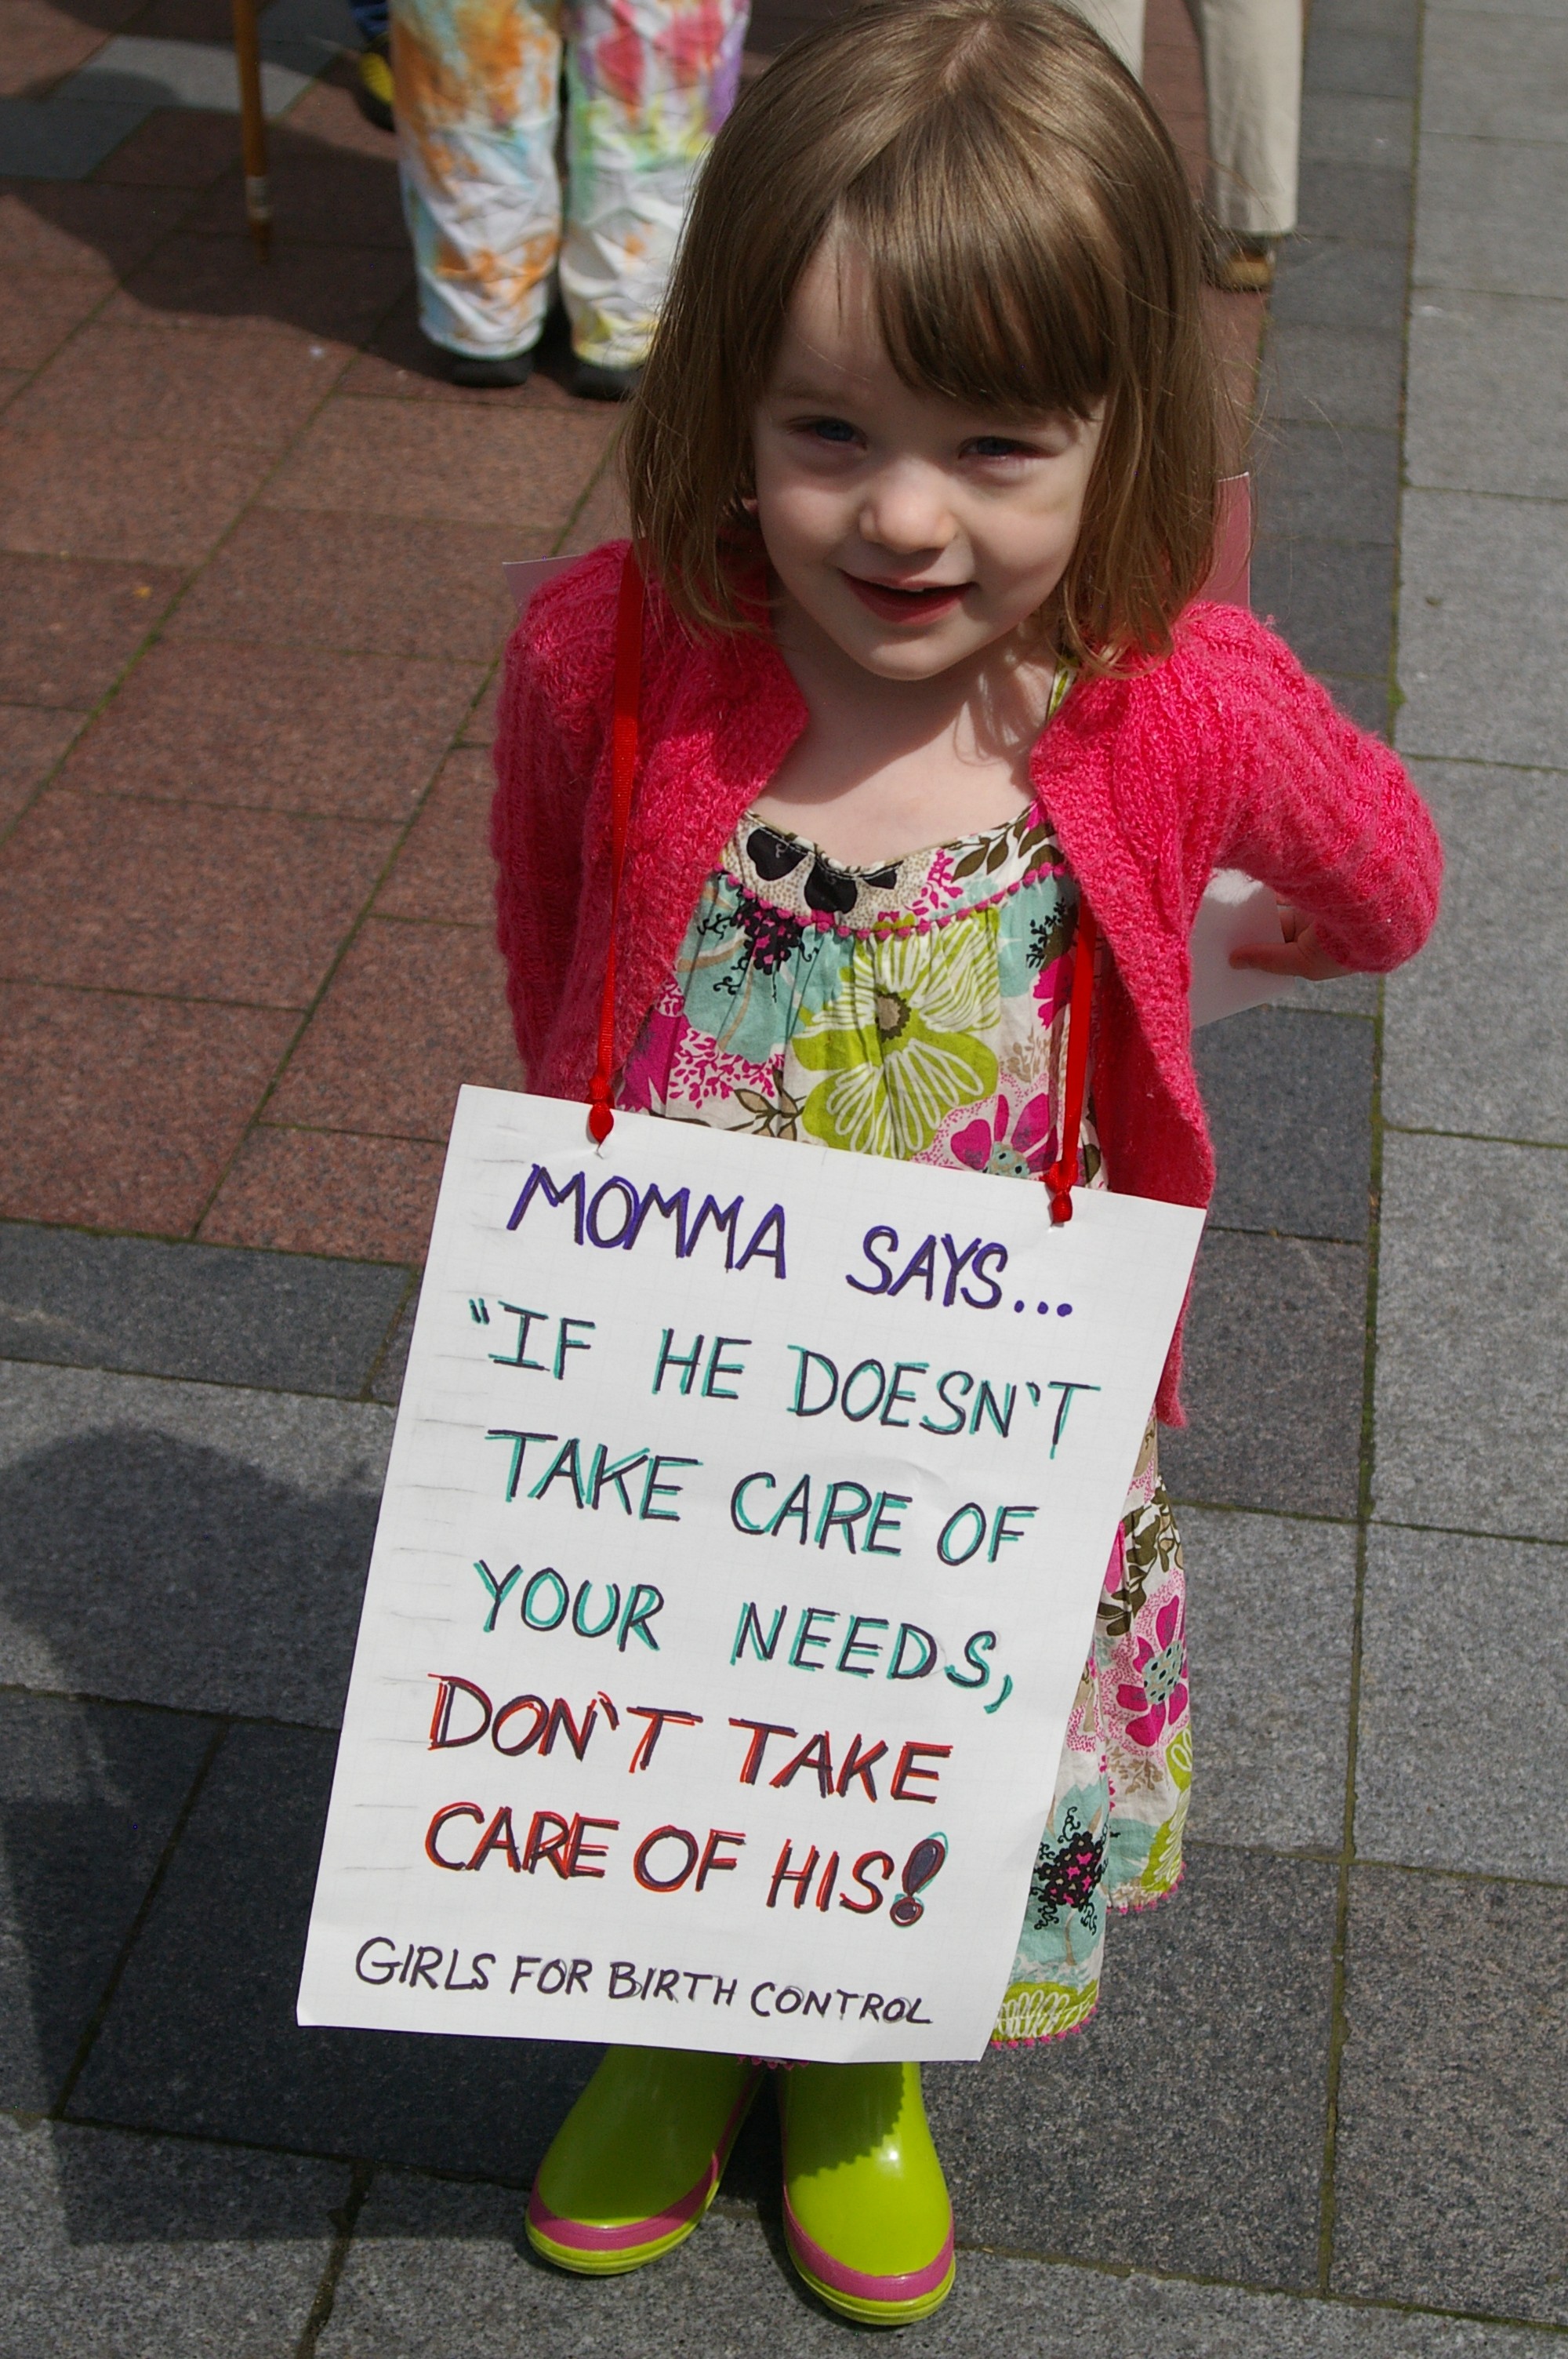 MOMMA SAYS...
"IF HE DOESN'T
TAKE CARE OF
YOUR NEEDS,
DON'T TAKE
CARE OF HIS!
GIRLS FOR BIRTH CONTROL